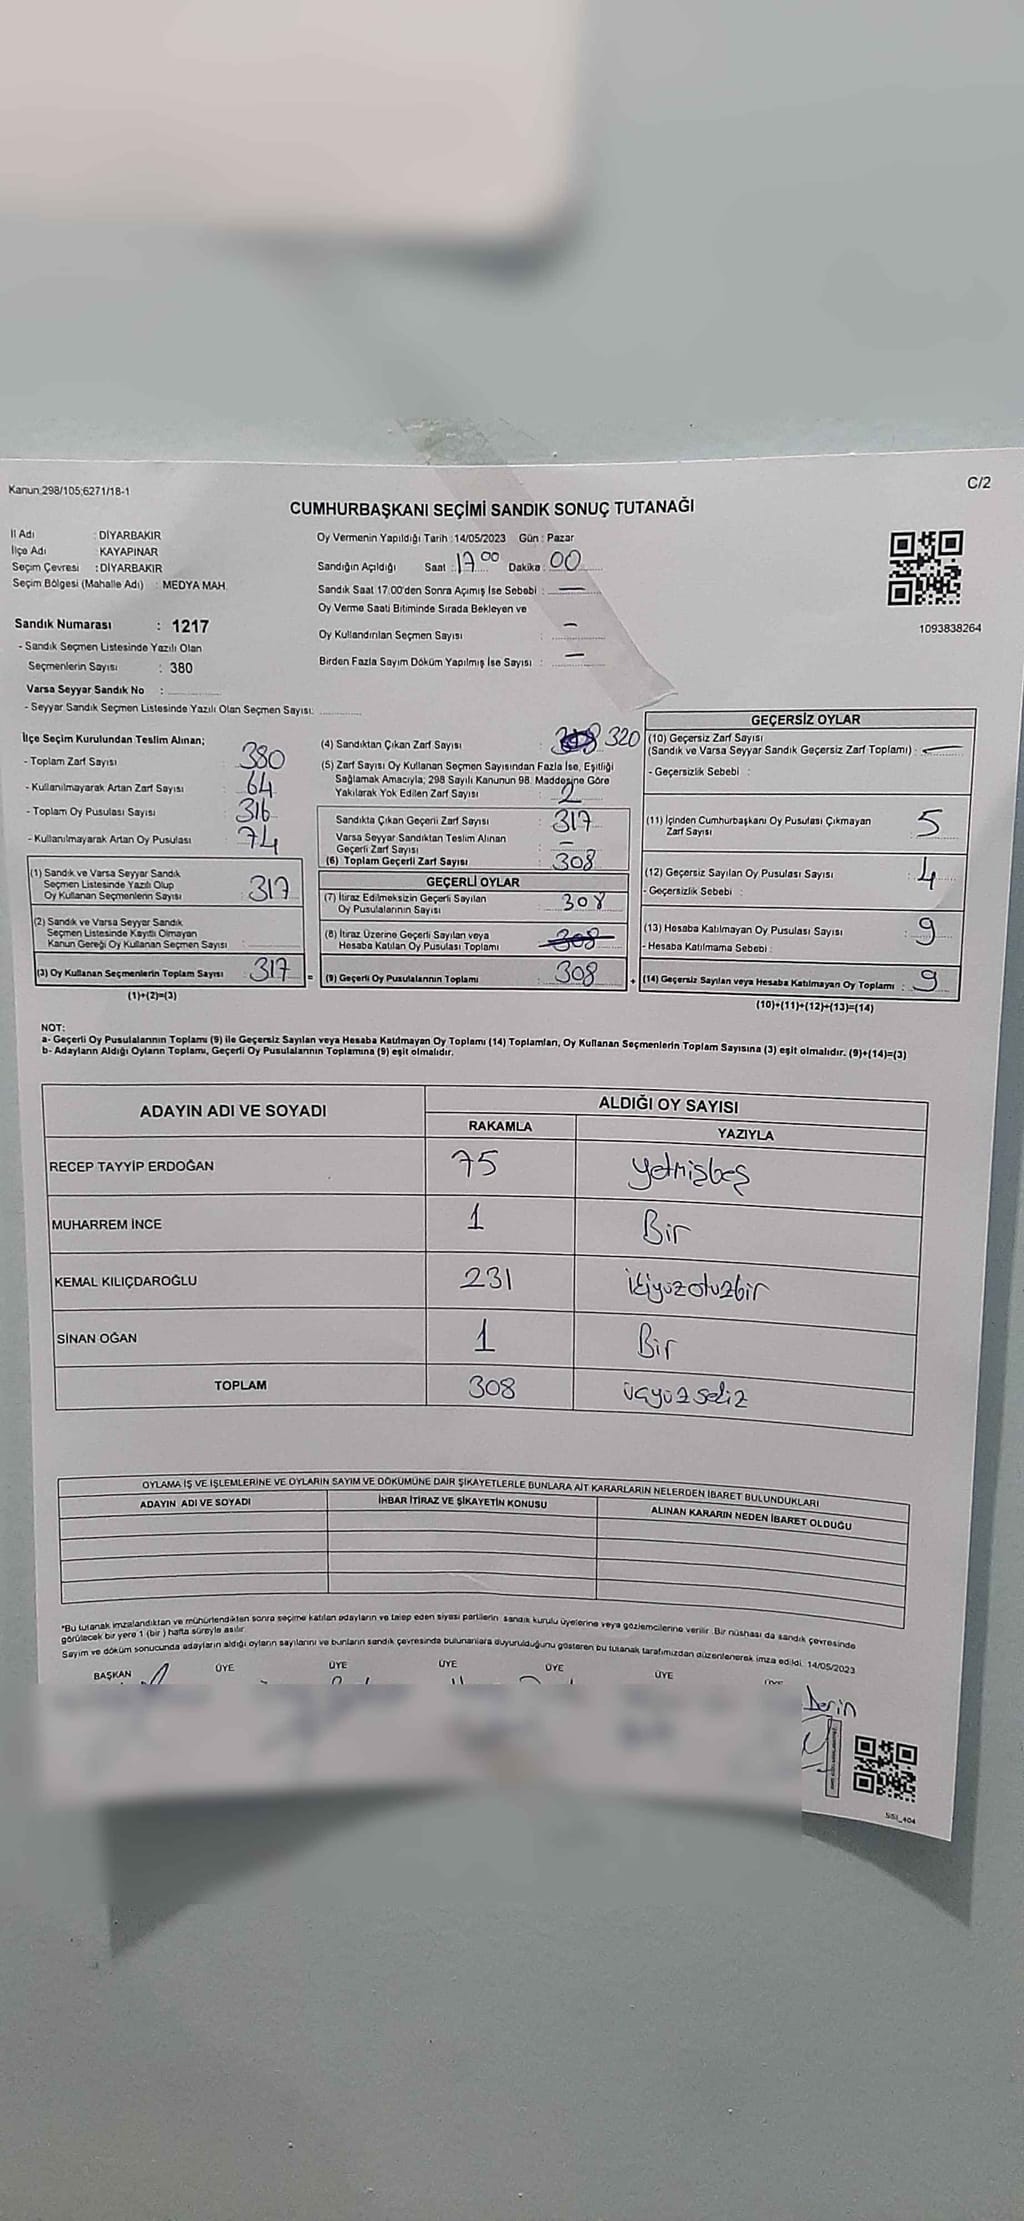 Kanun:298/105;6271/18-1
C/2
CUMHURBAŞKANI SEÇİMİ SANDIK SONUÇ TUTANAĞI
İl Adı : DİYARBAKIR
İlçe Adı : KAYAPINAR
Seçim Çevresi : DİYARBAKIR
Seçim Bölgesi (Mahalle Adı) : MEDYA MAH.
Sandık Numarası : 1217
- Sandık Seçmen Listesinde Yazılı Olan
Seçmenlerin Sayısı : 380
Varsa Seyyar Sandık No :
- Seyyar Sandık Seçmen Listesinde Yazılı Olan Seçmen Sayısı:
Oy Vermenin Yapıldığı Tarih : 14/05/2023 Gün : Pazar
Sandığın Açıldığı Saat : 17.00 Dakika : 00
Sandık Saat 17:00'den Sonra Açımış İse Sebebi : —
Oy Verme Saati Bitiminde Sırada Bekleyen ve
Oy Kullandırılan Seçmen Sayısı : —
Birden Fazla Sayım Döküm Yapılmış İse Sayısı : —
1093838264
İlçe Seçim Kurulundan Teslim Alınan;
- Toplam Zarf Sayısı : 380
- Kullanılmayarak Artan Zarf Sayısı : 64
- Toplam Oy Pusulası Sayısı : 316
- Kullanılmayarak Artan Oy Pusulası : 74
(1) Sandık ve Varsa Seyyar Sandık
Seçmen Listesinde Yazılı Olup
Oy Kullanan Seçmenlerin Sayısı : 317
(2) Sandık ve Varsa Seyyar Sandık
Seçmen Listesinde Kayıtlı Olmayan
Kanun Gereği Oy Kullanan Seçmen Sayısı :
(3) Oy Kullanan Seçmenlerin Toplam Sayısı : 317 =
(1)+(2)=(3)
(4) Sandıktan Çıkan Zarf Sayısı : 320
(5) Zarf Sayısı Oy Kullanan Seçmen Sayısından Fazla İse, Eşitliği
Sağlamak Amacıyla; 298 Sayılı Kanunun 98. Maddesine Göre
Yakılarak Yok Edilen Zarf Sayısı : 2
Sandıkta Çıkan Geçerli Zarf Sayısı : 317
Varsa Seyyar Sandıktan Teslim Alınan
Geçerli Zarf Sayısı : —
(6) Toplam Geçerli Zarf Sayısı : 308
GEÇERLİ OYLAR
(7) İtiraz Edilmeksizin Geçerli Sayılan
Oy Pusulalarının Sayısı : 308
(8) İtiraz Üzerine Geçerli Sayılan veya
Hesaba Katılan Oy Pusulası Toplamı : 308
(9) Geçerli Oy Pusulalarının Toplamı : 308 +
GEÇERSİZ OYLAR
(10) Geçersiz Zarf Sayısı
(Sandık ve Varsa Seyyar Sandık Geçersiz Zarf Toplamı) : —
- Geçersizlik Sebebi :
(11) İçinden Cumhurbaşkanı Oy Pusulası Çıkmayan
Zarf Sayısı : 5
(12) Geçersiz Sayılan Oy Pusulası Sayısı : 4
- Geçersizlik Sebebi :
(13) Hesaba Katılmayan Oy Pusulası Sayısı : 9
- Hesaba Katılmama Sebebi :
(14) Geçersiz Sayılan veya Hesaba Katılmayan Oy Toplamı : 9
(10)+(11)+(12)+(13)=(14)
NOT:
a- Geçerli Oy Pusulalarının Toplamı (9) ile Geçersiz Sayılan veya Hesaba Katılmayan Oy Toplamı (14) Toplamları, Oy Kullanan Seçmenlerin Toplam Sayısına (3) eşit olmalıdır. (9)+(14)=(3)
b- Adayların Aldığı Oyların Toplamı, Geçerli Oy Pusulalarının Toplamına (9) eşit olmalıdır.
ADAYIN ADI VE SOYADI
ALDIĞI OY SAYISI
RAKAMLA YAZIYLA
RECEP TAYYİP ERDOĞAN 75 yetmişbeş
MUHARREM İNCE 1 Bir
KEMAL KILIÇDAROĞLU 231 ikiyüzotuzbir
SİNAN OĞAN 1 Bir
TOPLAM 308 üçyüzsekiz
OYLAMA İŞ VE İŞLEMLERİNE VE OYLARIN SAYIM VE DÖKÜMÜNE DAİR ŞİKAYETLERLE BUNLARA AİT KARARLARIN NELERDEN İBARET BULUNDUKLARI
ADAYIN ADI VE SOYADI İHBAR İTİRAZ VE ŞİKAYETİN KONUSU ALINAN KARARIN NEDEN İBARET OLDUĞU
*Bu tutanak imzalandıktan ve mühürlendikten sonra seçime katılan adayların ve talep eden siyasi partilerin sandık kurulu üyelerine veya gözlemcilerine verilir. Bir nüshası da sandık çevresinde
görülecek bir yere 1 (bir) hafta süreyle asılır.
Sayım ve döküm sonucunda adayların aldığı oyların sayılarını ve bunların sandık çevresinde bulunanlara duyurulduğunu gösteren bu tutanak tarafımızdan düzenlenerek imza edildi. 14/05/2023
BAŞKAN ÜYE ÜYE ÜYE ÜYE ÜYE
Derin